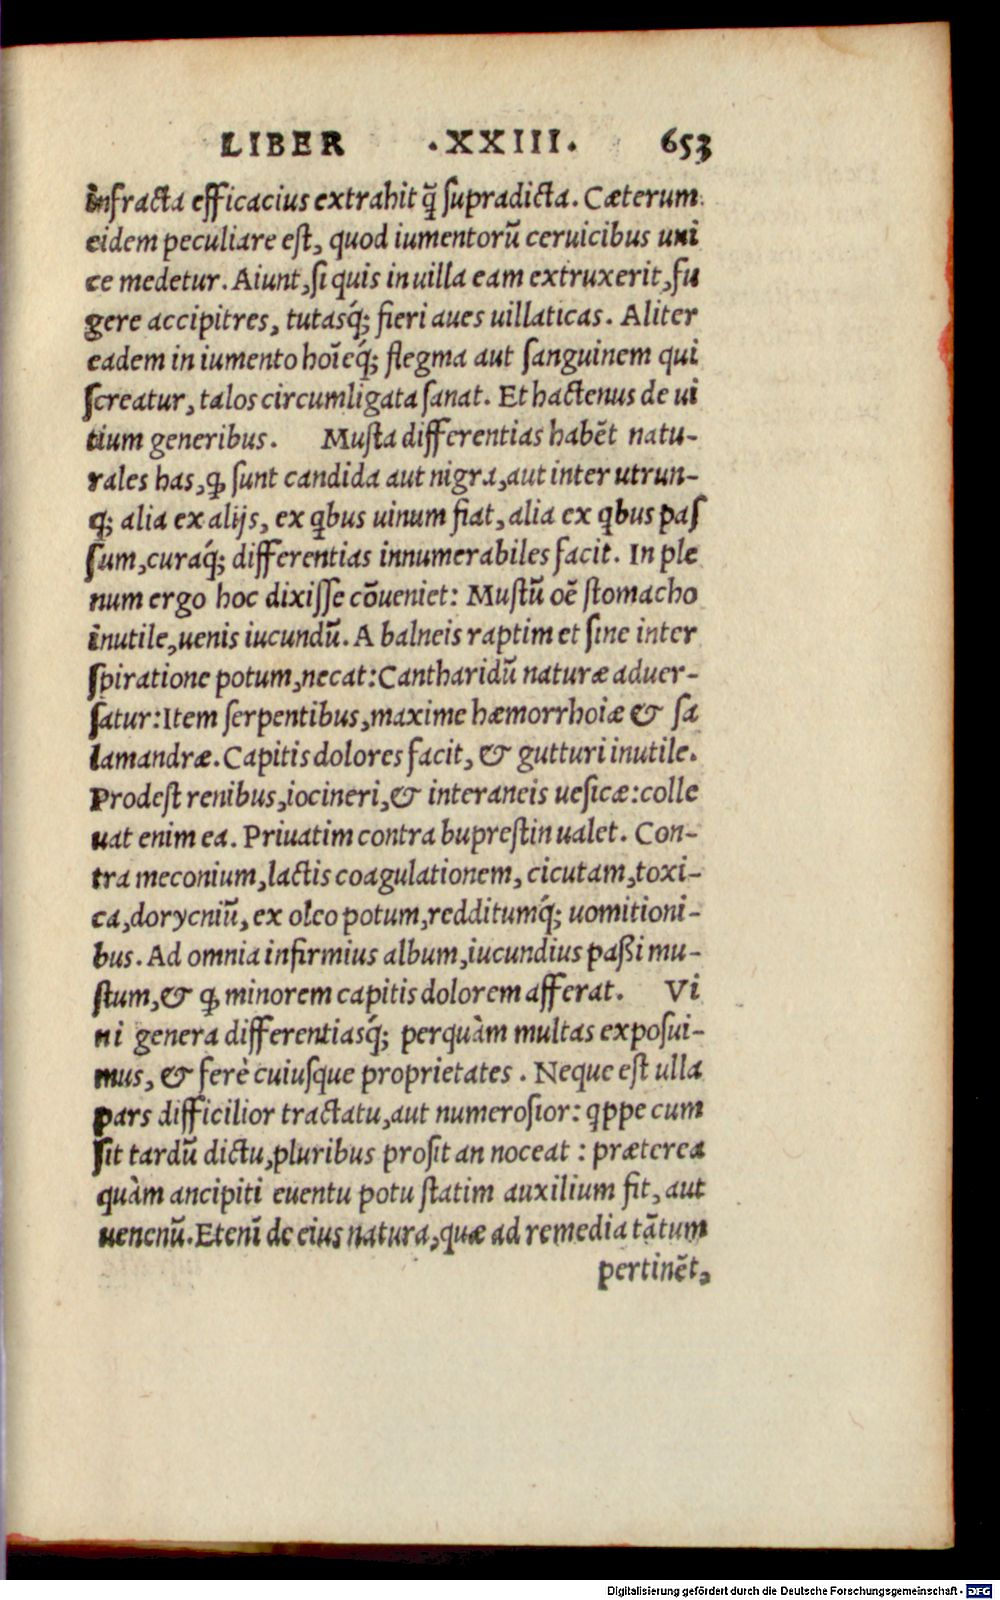 LIBER .XXIII. 653
infracta efficacius extrahit q̃ ſupradicta. Cæterum
eidem peculiare eſt, quod iumentorũ ceruicibus uni
ce medetur. Aiunt, ſi quis in uilla eam extruxerit, fu
gere accipitres, tutasq́; fieri aues uillaticas. Aliter
eadem in iumento hoĩeq́; flegma aut ſanguinem qui
ſcreatur, talos circumligata ſanat. Et hactenus de ui
tium generibus. Muſta differentias habẽt natu-
rales has, ꝙ ſunt candida aut nigra, aut inter utrun-
q; alia ex alijs, ex qbus uinum fiat, alia ex qbus paſ
ſum, curaq́; differentias innumerabiles facit. In ple
num ergo hoc dixiſſe cõueniet: Muſtũ oẽ ſtomacho
inutile, uenis iucundũ. A balneis raptim et ſine inter
ſpiratione potum, necat: Cantharidũ naturæ aduer-
ſatur: Item ſerpentibus, maxime hæmorrhoiæ & ſa
lamandræ. Capitis dolores facit, & gutturi inutile.
Prodeſt renibus, iocineri, & interaneis ueſicæ: colle
uat enim ea. Priuatim contra bupreſtin ualet. Con-
tra meconium, lactis coagulationem, cicutam, toxi-
ca, dorycniũ, ex oleo potum, redditumq́; uomitioni-
bus. Ad omnia infirmius album, iucundius paßi mu-
ſtum, & ꝙ minorem capitis dolorem afferat. Vi
ni genera differentiasq́; perquàm multas expoſui-
mus, & ferè cuiuſque proprietates. Neque eſt ulla
pars difficilior tractatu, aut numeroſior: qppe cum
ſit tardũ dictu, pluribus proſit an noceat: præterea
quàm ancipiti euentu potu ſtatim auxilium fit, aut
uenenũ. Etenĩ de eius natura, quæ ad remedia tãtum
pertinẽt,
Digitalisierung gefördert durch die Deutsche Forschungsgemeinschaft - DFG